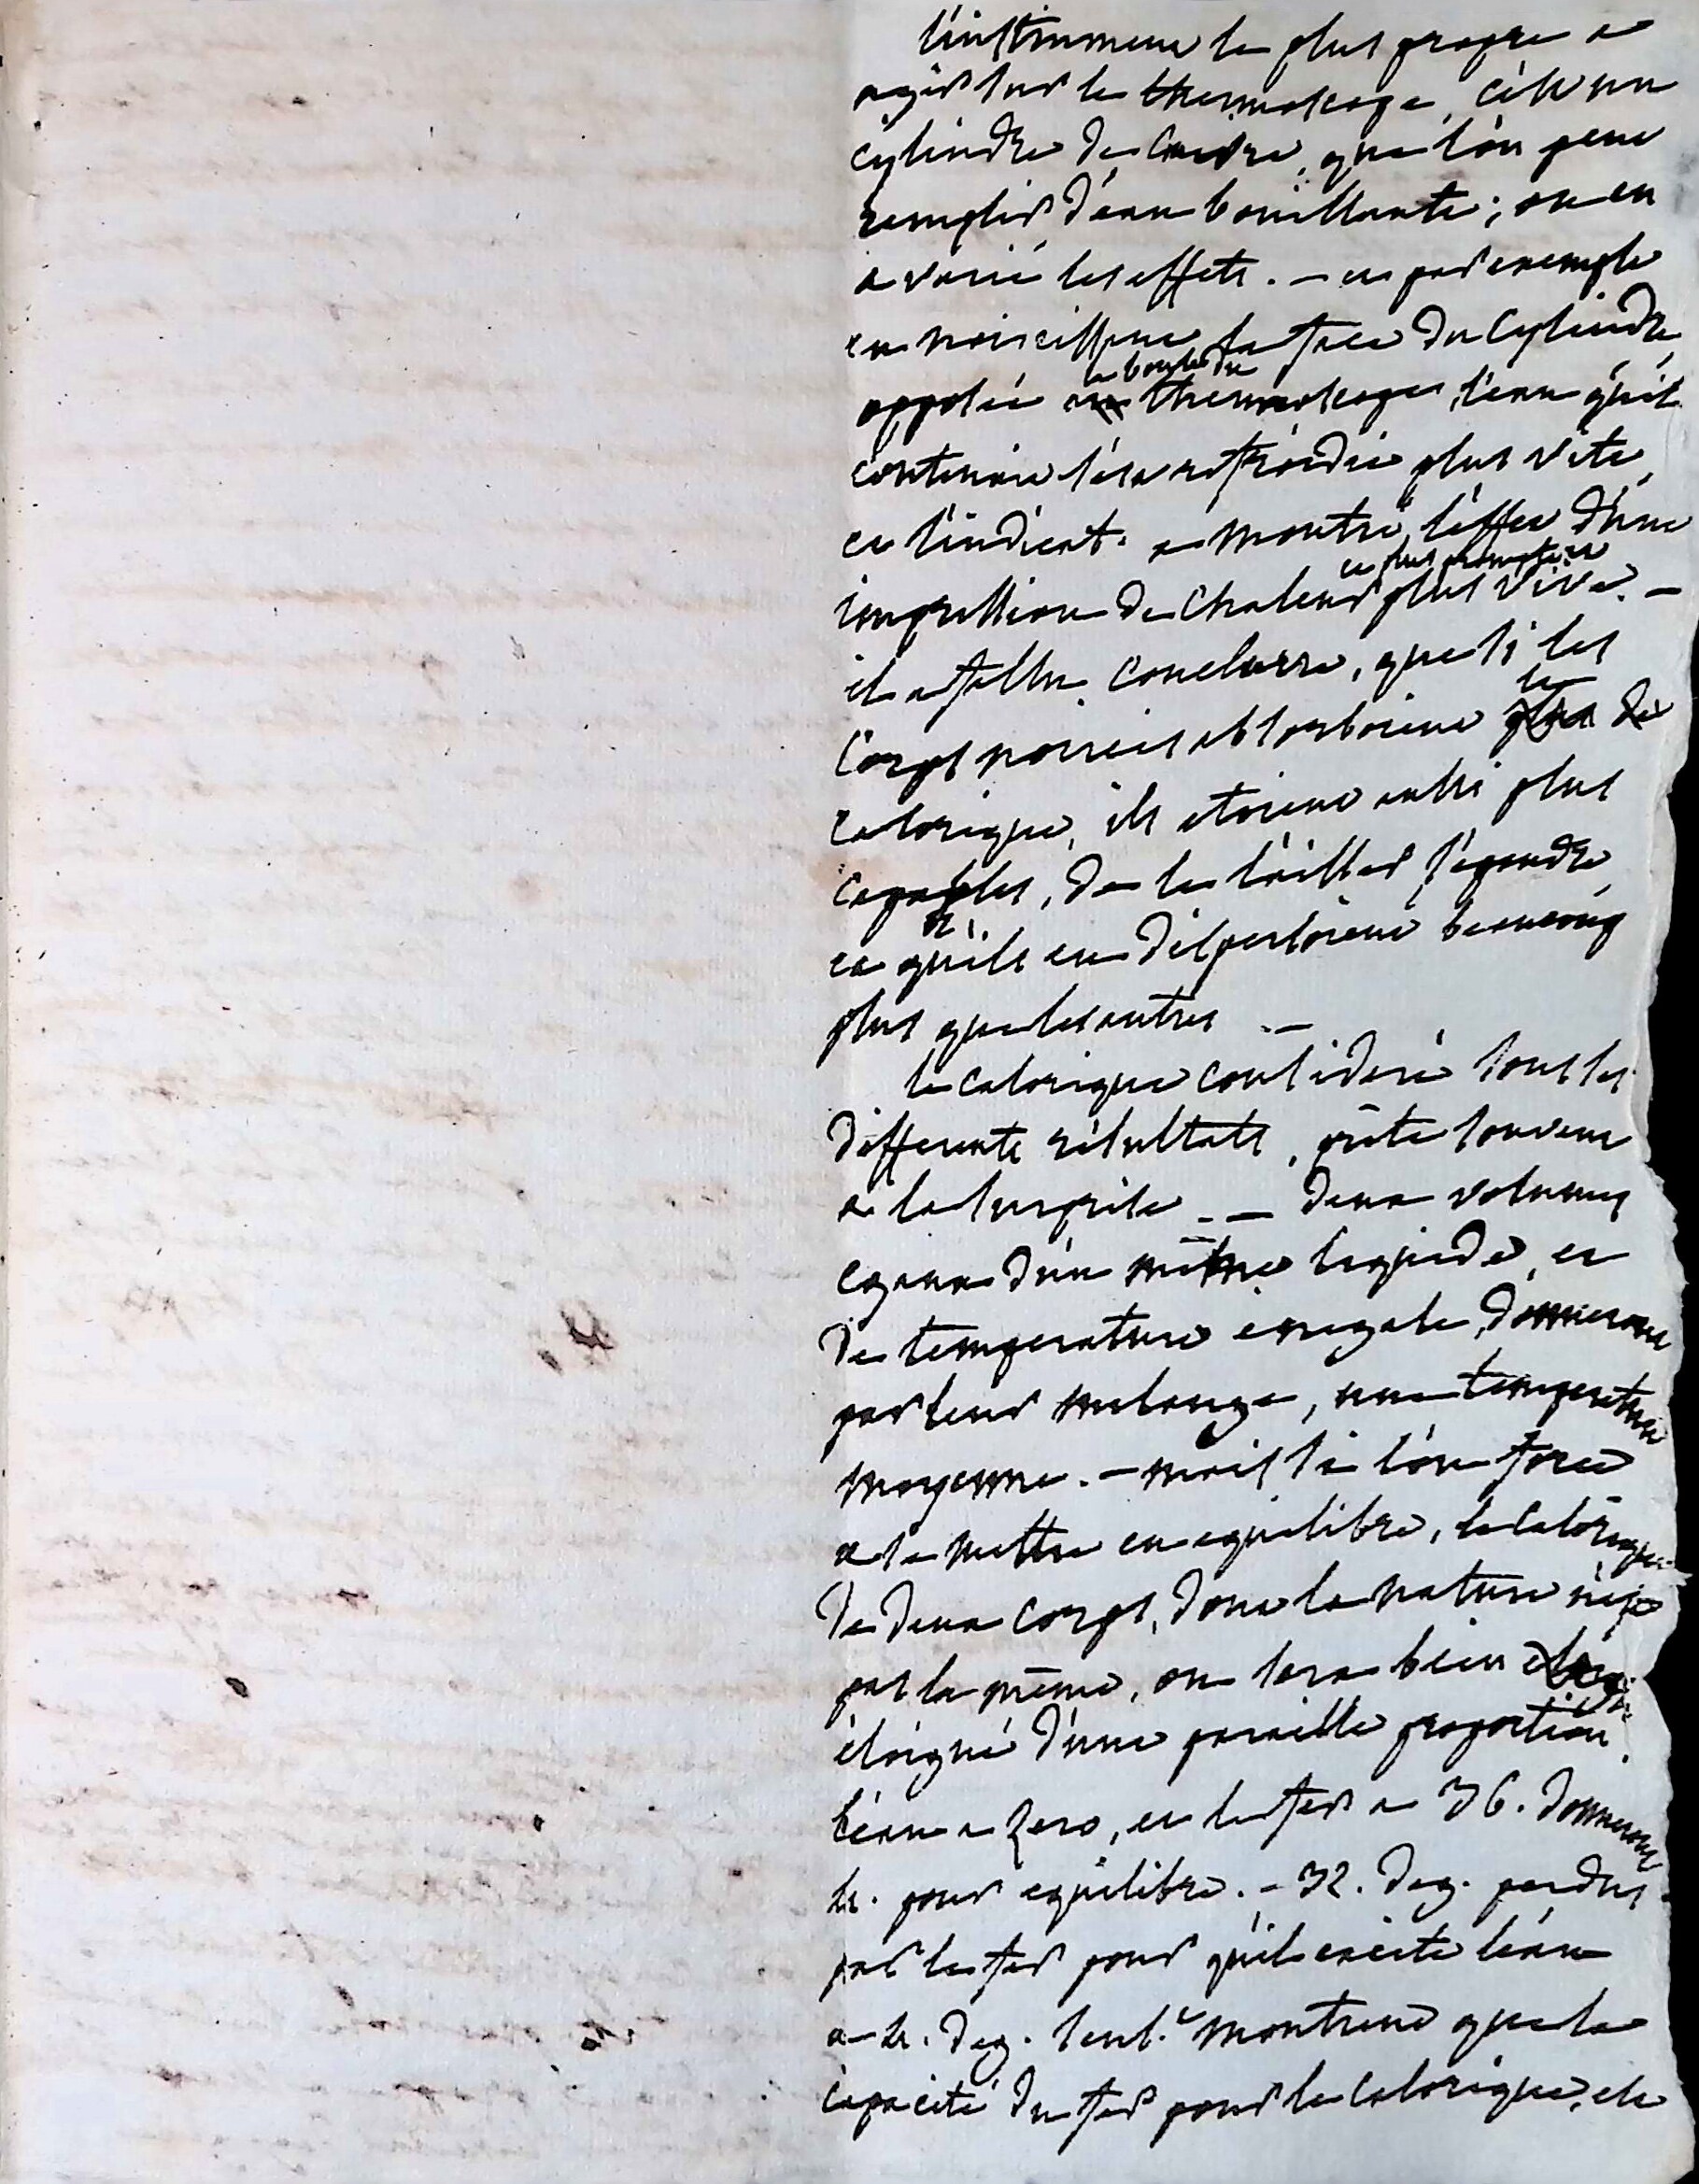 l'instrument le plus propre a
agir sur le thermoscope, c'est un
cylindre de cuivre, que l'on peut
remplir d'eau bouillante; on en
a varié les effets. — et par exemple
en noircissant la face du cylindre
opposée la boule du thermoscope, l'eau qu'il
contenait s'est refroidie plus vite,
et l'indicat. a montré l'effet d'une
impression de chaleur plus vive et plus prompte. —
il a fallu conclurre, que si les
corps noircis absorboient le
calorique, ils etoient aussi plus
capables, de le laisser s'épandre
et qu'ils en dispersoient beaucoup
plus que les autres. —
le calorique consideré sous ses
differents résultats, prête souvent
a la surprise. — deux volumes
egaux d'un même liquide, et
de temperature inegale, donneront
par leur melange, une temperature
moyenne. — mais si l'on force
a se mettre en equilibre, le calorique
de deux corps, dont la nature n'est
pas la même, on sera bien
éloigné d'une pareille proportion.
l'eau a zero, et le fer a 36. donneront
4. pour equilibre. — 32. deg. perdus
par le fer pour qu'il excite l'eau
a 4. deg. seul.t montrent que la
capacité du fer pour le calorique, est